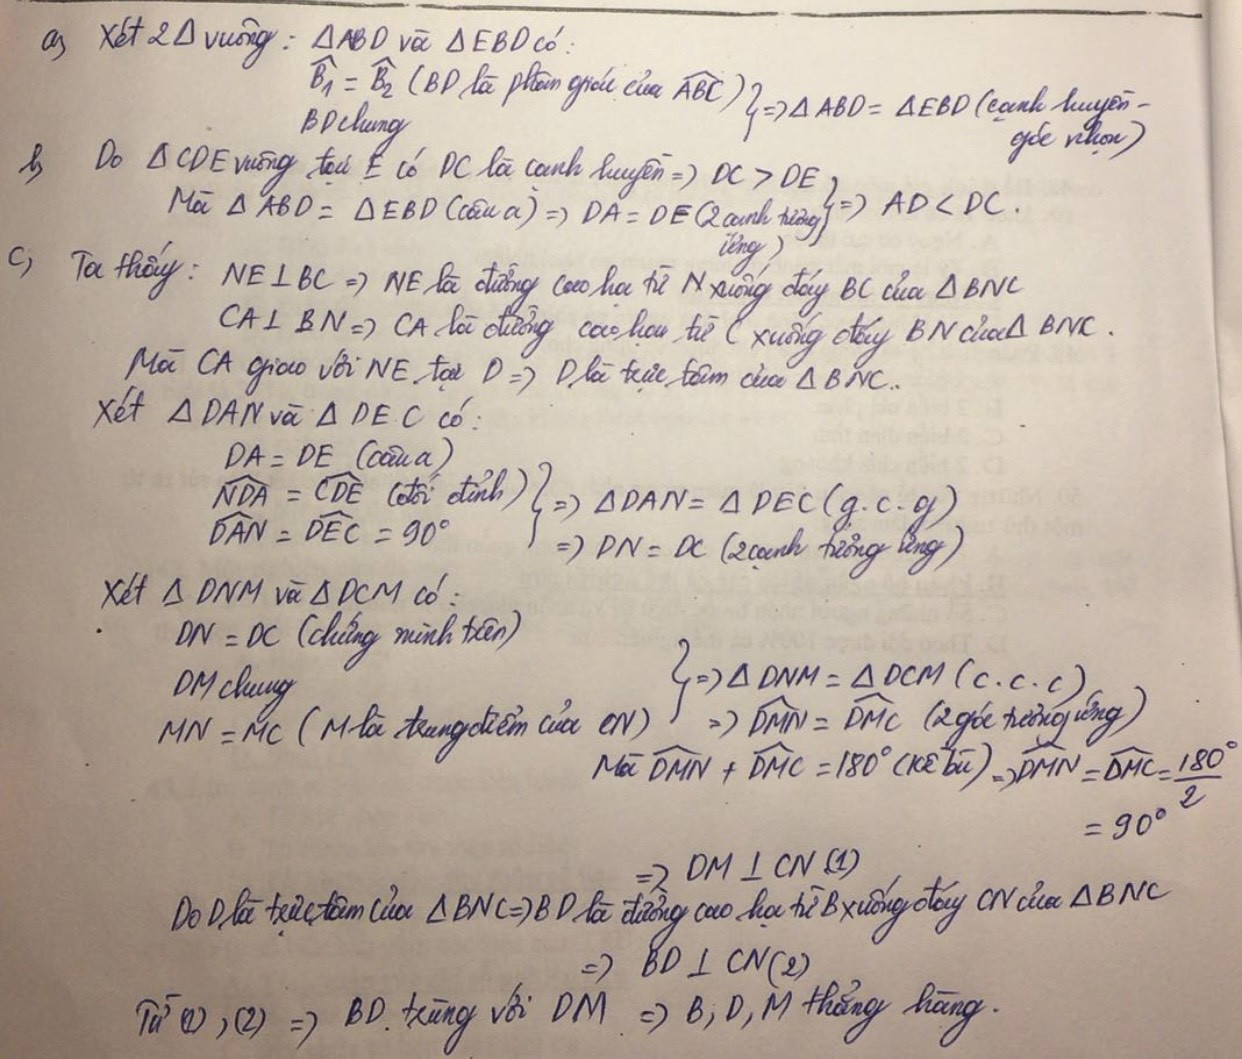 a, Xét 2 Δ vuông: ΔABD và ΔEBD có:
B̂₁ = B̂₂ (BD là phân giác của ABC)
BD chung
} => ΔABD = ΔEBD (cạnh huyền -
góc nhọn)
b, Do ΔCDE vuông tại E có DC là cạnh huyền => DC > DE
Mà ΔABD = ΔEBD (câu a) => DA = DE (2 cạnh tương
ứng)
} => AD < DC.
c, Ta thấy: NE ⊥ BC => NE là đường cao hạ từ N xuống đáy BC của ΔBNC
CA ⊥ BN => CA là đường cao hạ từ C xuống đáy BN của ΔBNC.
Mà CA giao với NE tại D => D là trực tâm của ΔBNC..
Xét ΔDAN và ΔDEC có:
DA = DE (câu a)
NDA = CDE (đối đỉnh)
DAN = DEC = 90°
} => ΔDAN = ΔDEC (g.c.g)
=> DN = DC (2 cạnh tương ứng)
Xét ΔDNM và ΔDCM có:
DN = DC (chứng minh trên)
DM chung
MN = MC (M là trung điểm của CN)
} => ΔDNM = ΔDCM (c.c.c)
=> DMN = DMC (2 góc tương ứng)
Mà DMN + DMC = 180° (kề bù) => DMN = DMC = 180°/2
= 90°
=> DM ⊥ CN (1)
Do D là trực tâm của ΔBNC => BD là đường cao hạ từ B xuống đáy CN của ΔBNC
=> BD ⊥ CN (2)
Từ (1), (2) => BD trùng với DM => B, D, M thẳng hàng.